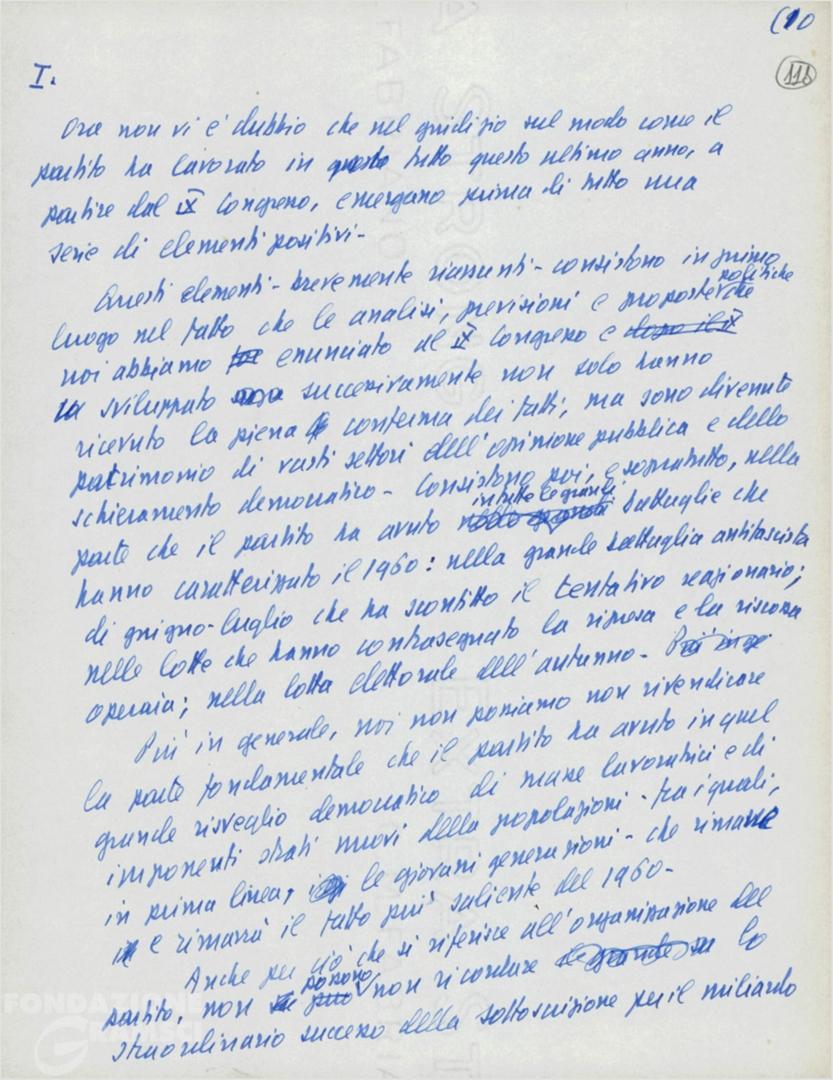 (10
118
I.
Ora non vi è dubbio che nel giudizio sul modo come il
partito ha lavorato in questo tutto questo ultimo anno, a
partire dal IX Congresso, emergano prima di tutto una
serie di elementi positivi-
Questi elementi - brevemente riassunti - consistono in primo
luogo nel fatto che le analisi, previsioni e proposte politiche che
noi abbiamo enunciato al IX Congresso e dopo il IX
sviluppato successivamente non solo hanno
ricevuto la piena conferma dei fatti, ma sono divenute
patrimonio di vasti settori dell'opinione pubblica e dello
schieramento democratico - Consistono poi, e sopratutto, nella
parte che il partito ha avuto in tutte le grandi battaglie che
hanno caratterizzato il 1960: nella grande battaglia antifascista
di giugno-luglio che ha sconfitto il tentativo reazionario;
nelle lotte che hanno contrasegnato la ripresa e la riscossa
operaia; nella lotta elettorale dell'autunno - Più in ge
Più in generale, noi non possiamo non rivendicare
la parte fondamentale che il partito ha avuto in quel
grande risveglio democratico di masse lavoratrici e di
imponenti strati nuovi della popolazioni - tra i quali,
in prima linea, le giovani generazioni - che rimane
e rimarrà il fatto più saliente del 1960-
Anche per ciò che si riferisce all'organizzazione del
partito, non si può possono non ricordare lo
straordinario successo della sottoscrizione per il miliardo
FONDAZIONE
GRAMSCI